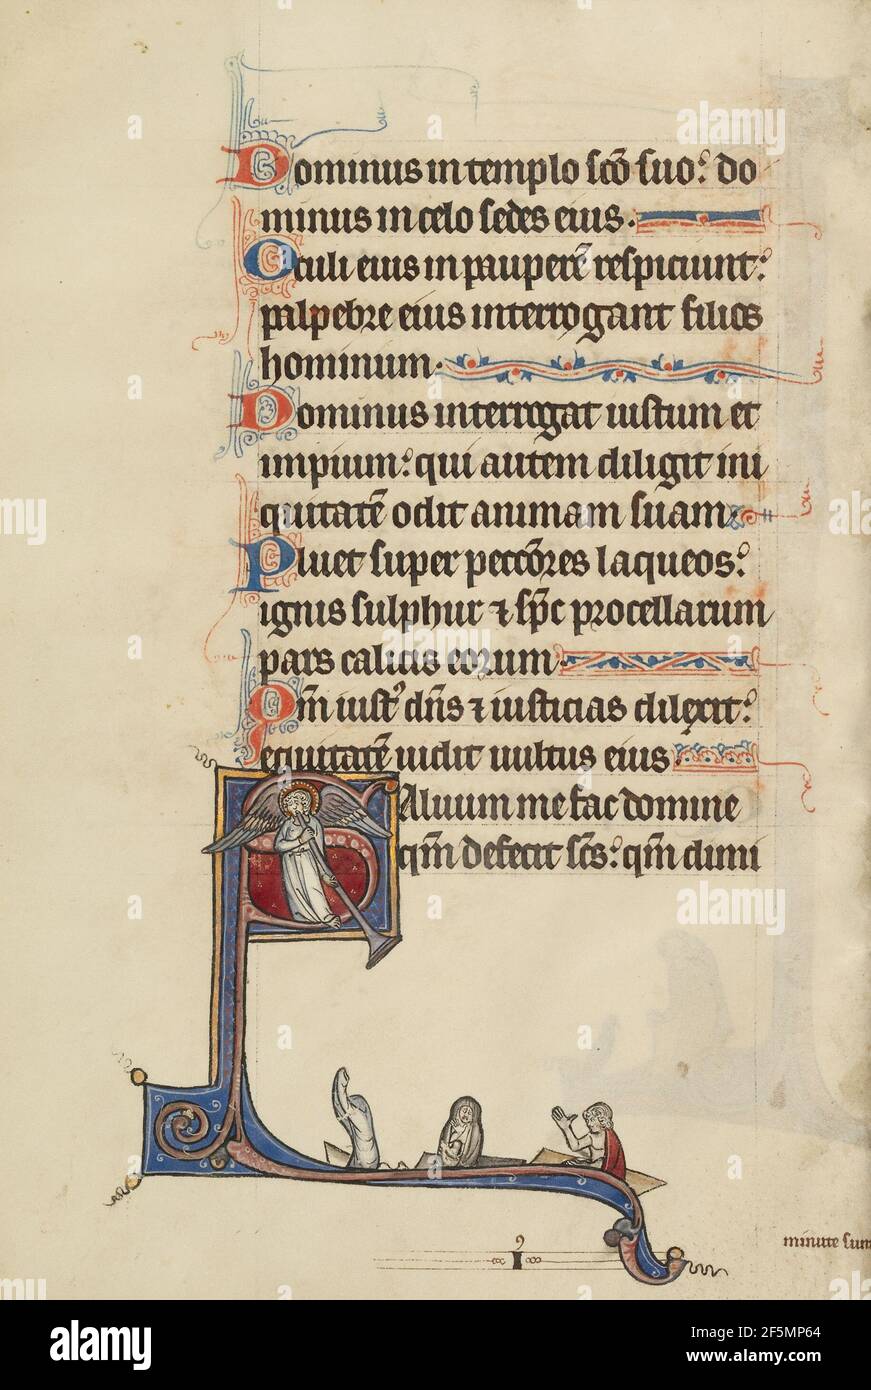 Dominus in templo sc̄o suo: do
minus in celo sedes eius.
Oculi eius in pauperē respiciunt:
palpebre eius interrogant filios
hominum.
Dominus interrogat iustum et
impium: qui autem diligit ini
quitatē odit animam suam.
Pluet super pecc̄ores laqueos:
ignis sulphur ⁊ sp̄c procellarum
pars calicis eorum.
Qm̄ iustꝰ dn̄s ⁊ iusticias dilexit:
equitatē uidit uultus eius.
Saluum me fac domine
qm̄ defecit sc̄s: qm̄ dimi
minute sun
alamy
alamy
alamy
alamy
a
a
a
a
alamy
Image ID: 2F5MP64
www.alamy.com